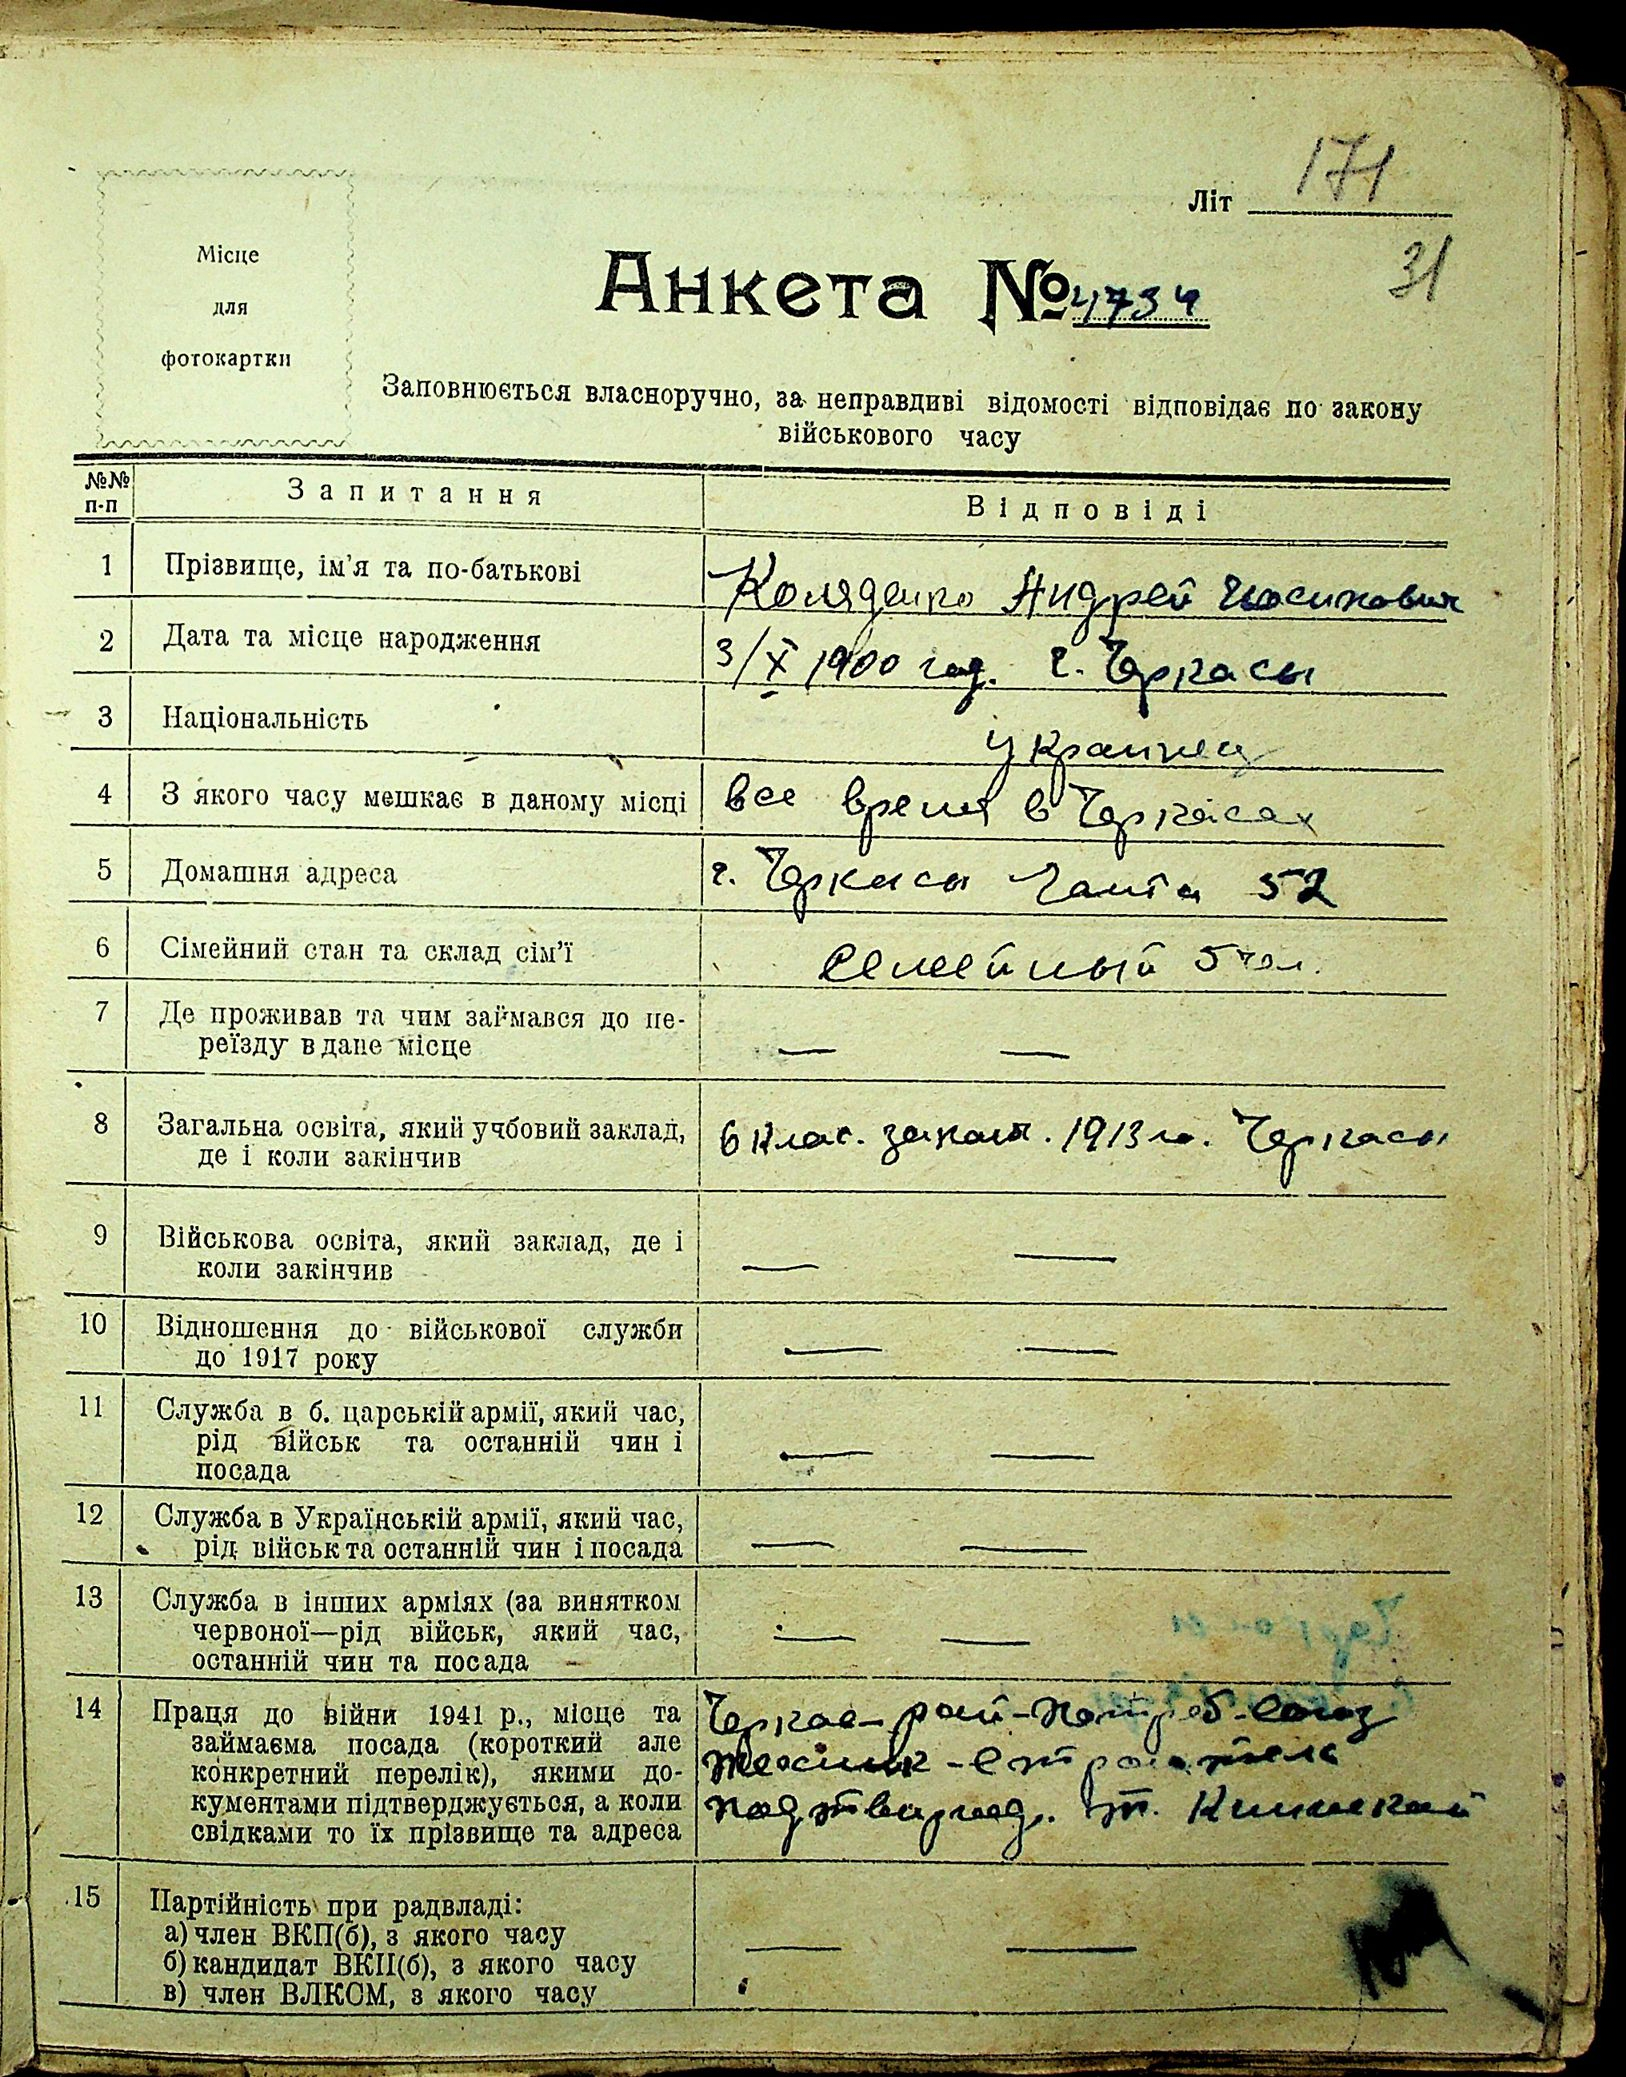 171
Літ
31
Місце
для
фотокартки
Анкета № 4734
Заповнюється власноручно, за неправдиві відомості відповідає по закону
військового часу
№№
п-п
Запитання
Відповіді
1 Прізвище, ім'я та по-батькові
Коляденко Андрей Иосипович
2 Дата та місце народження
3/X 1900 год. г. Черкасы
3 Національність
украинец
4 З якого часу мешкає в даному місці
все время в Черкасах
5 Домашня адреса
г. Черкасы 52
6 Сімейний стан та склад сім'ї
семейный 5 чел.
7 Де проживав та чим займався до пе-
реїзду в дане місце
— —
8 Загальна освіта, який учбовий заклад,
де і коли закінчив
6 клас. 1913 го. Черкасы
9 Військова освіта, який заклад, де і
коли закінчив
— —
10 Відношення до військової служби
до 1917 року
— —
11 Служба в б. царській армії, який час,
рід військ та останній чин і
посада
— —
12 Служба в Українській армії, який час,
рід військ та останній чин і посада
— —
13 Служба в інших арміях (за винятком
червоної—рід військ, який час,
останній чин та посада
— —
14 Праця до війни 1941 р., місце та
займаєма посада (короткий але
конкретний перелік), якими до-
кументами підтверджується, а коли
свідками то їх прізвище та адреса
Черкас-рай-потреб-союз
техник-строитель
15 Партійність при радвладі:
а) член ВКП(б), з якого часу
б) кандидат ВКП(б), з якого часу
в) член ВЛКСМ, з якого часу
— —